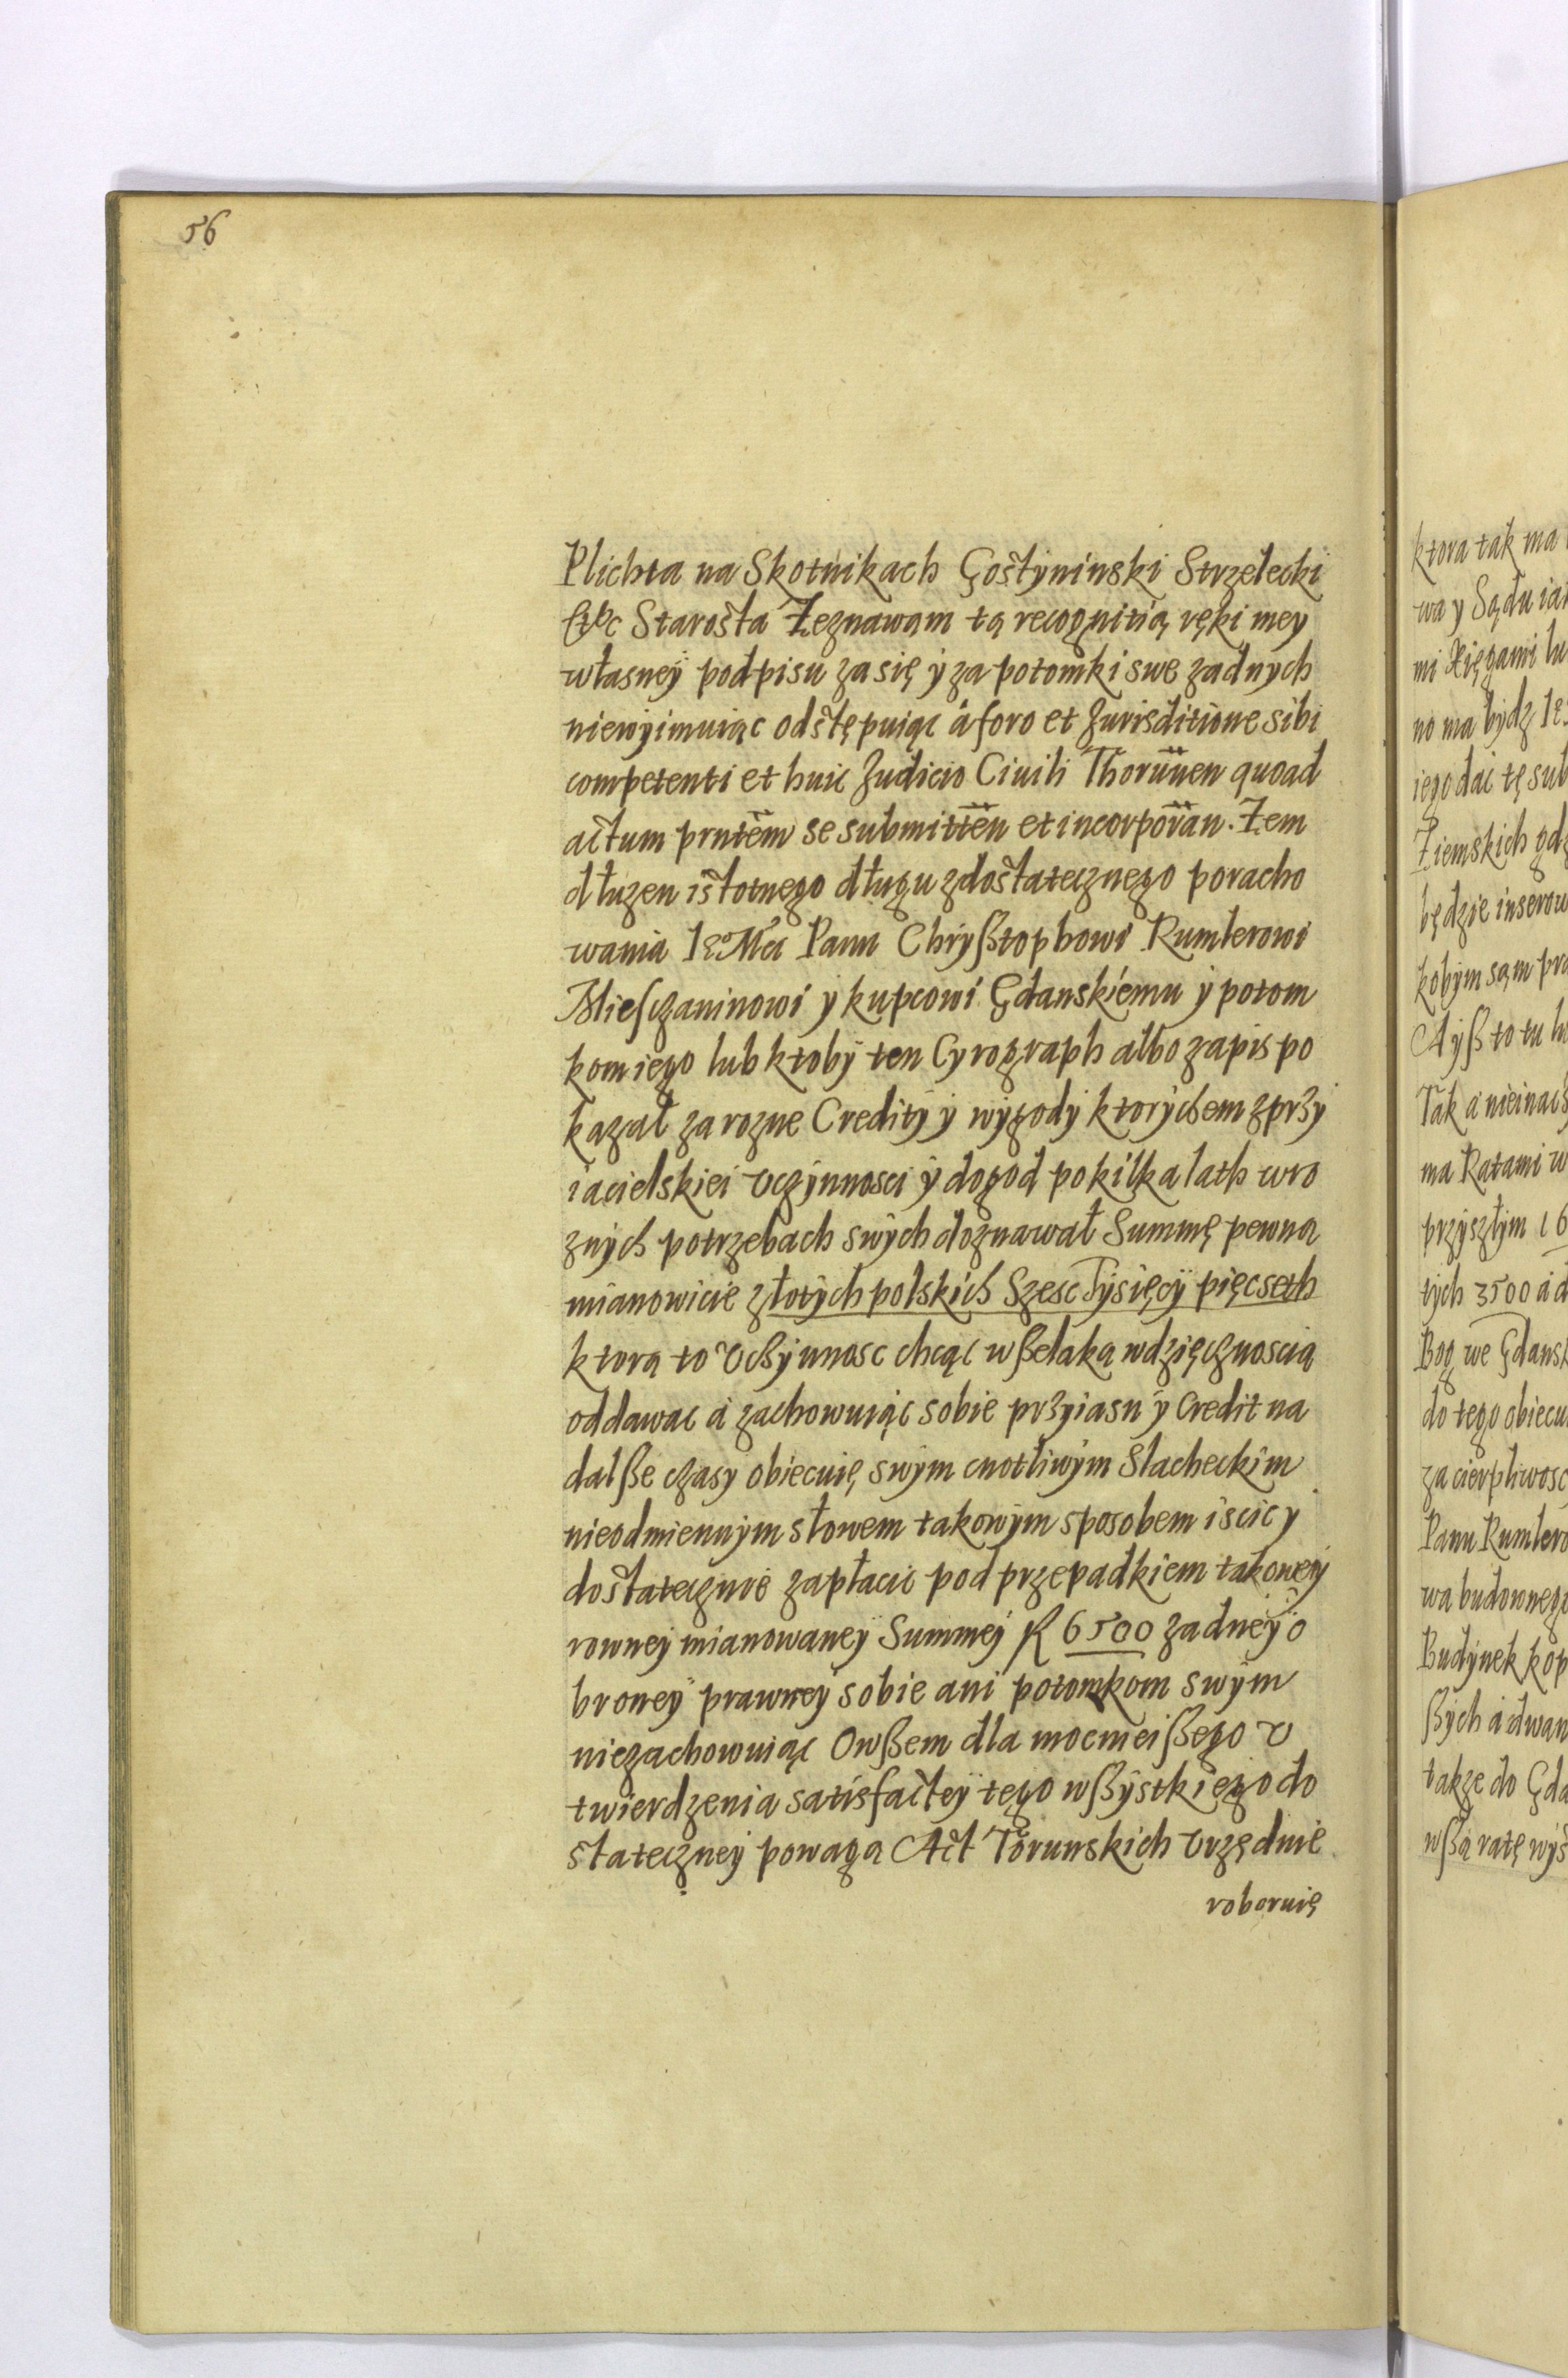 56
Plichta na Skotnikach Gostyninski Strzelecki
etc Starosta Zeznawąm tą recognitią ręki mey
własney podpisu za się y za potomki swe zadnych
niewyimuiąc odstępuiąc á foro et Jurisditione sibi
competenti et huic Judicio Ciuili Thorunen quoad
actum prntem se submitten et incorporan. Zem
dłuzen istotnego długu z dostatecznego poracho
wania Ie° Mci Panu Chryßtophowi Rumlerowi
Miesczaninowi y kupcowi Gdanskiemu y potom
kom iego lub ktoby ten Cyrograph albo zapis po
kazał za rozne Credity y wygody ktorychem z przy
iacielskiei vczynnosci y dogod po kilka lath w ro
znych potrzebach swych doznawał Summę pewną
mianowicie złotych polskich Szesc Tysięcy pięcseth
ktorą to vczynnosc chcąc wßelaką wdzięcznoscią
oddawac á zachowuiąc sobie przyiasn y Credit na
dalße czasy obiecuię swym cnotliwym Slacheckim
nieodmiennym słowem takowym sposobem iscic y
dostatecznie zapłacic pod przepadkiem takowey
rowney mianowaney Summey R 6500 zadney o
broney prawney sobie ani potomkom swym
niezachowuiąc Owßem dla mocnieißego v
twierdzenia satisfactey tego wßystkiego do
stateczney powagą Act Torunskich vrzędnie
roboruię
ktora tak ma
wa y Sądu iak
mi Xięgami lu
no ma bydz Ie
iego dac tę sub
Ziemskich gdz
będzie inserow
kobym sąm pra
Ayß to tu
Tak á nieinacz
ma Ratami w
przyszłym 16
tych 3500 á d
Bog we Gdansk
do tego obiecu
za cierpliwosc
Panu Rumlero
wa budownego
Budynek kop
ßych á dwan
takze do Gda
wßą ratę wys